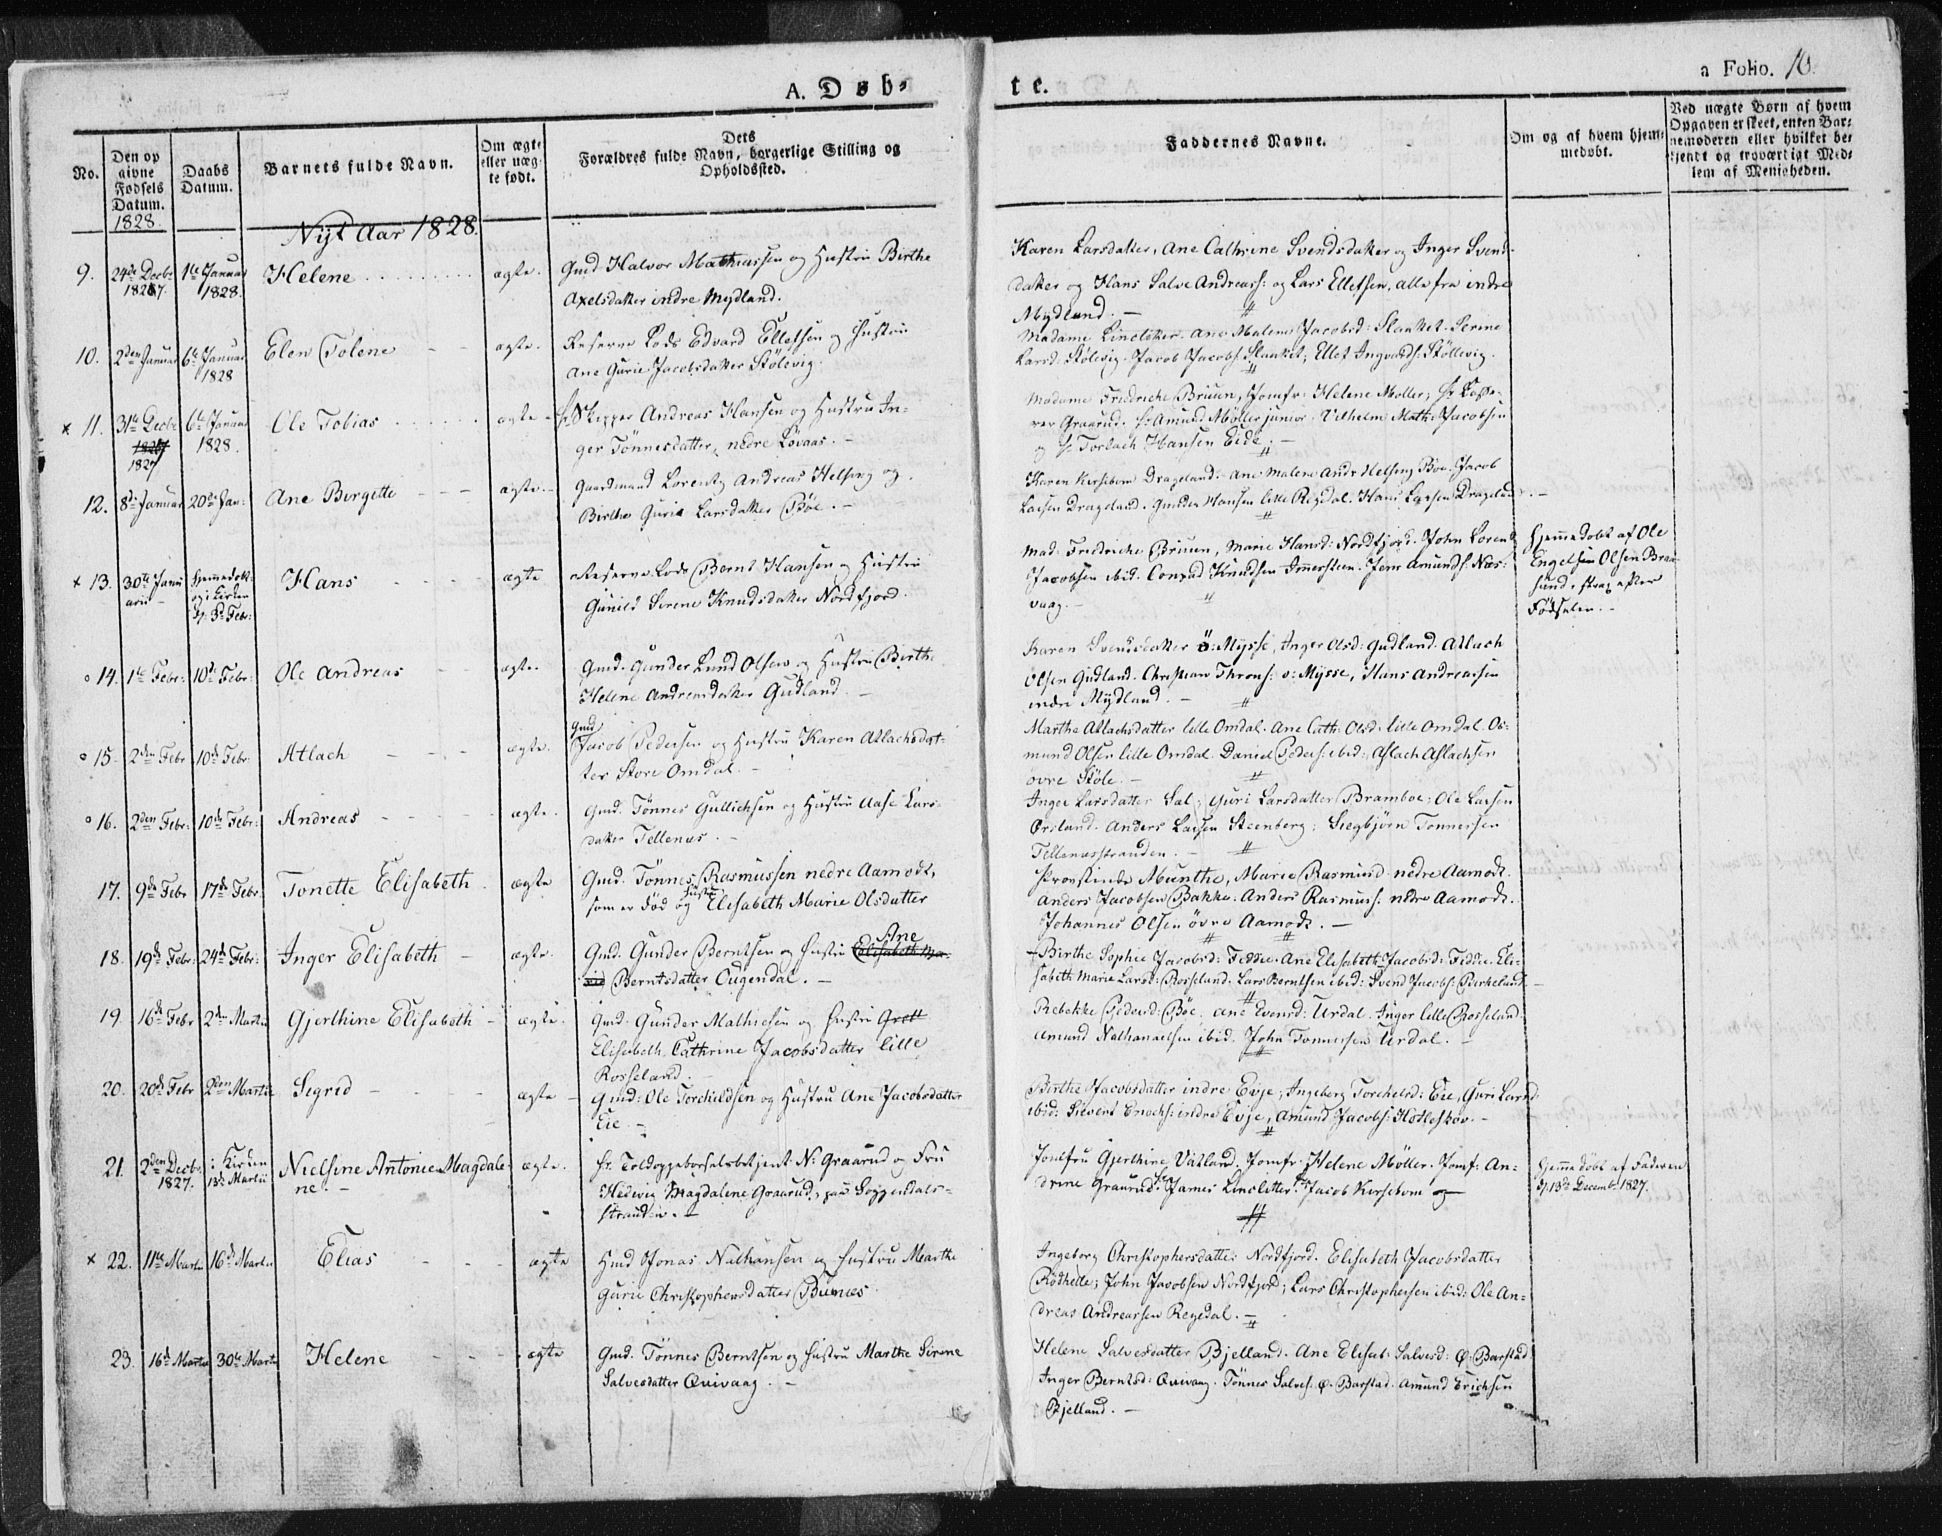 A. Døb-
te.
a Folio. 10.
No.
Den op
givne
Fødsels
Datum.
1828
Daabs
Datum.
Barnets fulde Navn.
Om ægte
eller uæg-
te født.
Dets
Forældres fulde Navn, borgerlige Stilling og
Opholdssted.
Faddernes Navne.
Om og af hvem hjem-
medøbt.
Ved uægte Børn af hvem
Opgaven er skeet, enten Bar-
nemoderen eller hvilket be-
kjendt og troværdigt Med-
lem af Menigheden.
Nyt Aar 1828.
9. 24de Decbr 1827. 1te Januar 1828. Helene ægte. Gmd Halvor Mathiassen og Hustru Birthe
Axelsdatter indre Mydland.
Karen Larsdatter, Ane Cathrine Svendsdatter og Inger Svend-
datter og Hans Salve Andreas: og Lars Elletsen, alle fra indre
Mydland. —
10. 2den Januar 6te Januar 1828 Elen Tolene ægte. Reserve Lods Edvard Elletsen og Hustru
Ane Gurie Jacobsdatter Stölevig.
Madame Lincleter. Ane Malene Jacobsd: Slanket. Serine
Larsd: Stölevig. Jacob Jacobs: Slanket; Ellet Ingvards: Stöllevig.
x 11. 31te Decbr 1827 6te Januar 1828. Ole Tobias ægte - hr. Skipper Andreas Hansen og Hustru In-
ger Tönnesdatter, nedre Lövaas. —
Madame Fredriche Bruun, Jomfr: Helene Møller, hr
Graarud. hr: Amund Møller junior. Vilhelm Math: Jacobsen
og hr Torlach Hansen Eide. —
12. 8de Januar 20de Jan: Ane Birgitte ægte. Gaardmand Lorentz Andreas Helseng og
Birthe Gurie Larsdatter Böe. —
Karen Kirsebom Drageland. Ane Malene Andr: Helseng Böe. Jacob
Larsen Drageland. Gunder Hansen lille Regdal. Hans Larsen Drageland. —
x 13. 30te Janu
arii — hjemmedöbt
og i Kirken
d. 3de Febr: Hans ægte Reserve Lods Bernt Hansen og Hustru
Gunild Serene Knudsdatter Nordfjord.
Mad: Fredriche Bruun, Marie Hansd: Nordfjord. John Lorentz
Jacobsen ibid. Conrad Knudsen Immersteen. Jens Amunds: Næs-
vaag. —
Hjemmedöbt af Ole
Engelsen Olsen
strax efter
Födselen. —
o 14. 1te Febr: 10de Febr: Ole Andreas ægte. Gmd. Gunder Lund Olsen og Hustru Birthe
Helene Andreasdatter Gudland. —
Karen Svendsdatter ö: Mysse, Inger Olsd: Gudland. Atlach
Olsen Gudland. Christian Throns: ö: Mysse, Hans Andreassen
indre Mydland. —
o 15. 2den Febr 10de Febr: Atlach ægte. Gmd
Jacob Pedersen og Hustru Karen Atlachsdat-
ter Store Omdal. —
Marthe Atlachsdatter lille Omdal. Ane Cath: Olsd: lille Omdal. Os-
mund Olsen lille Omdal. Daniel Peders: ibid: Aslach Aslachsen
övre Stöle. —
o 16. 2den Febr: 10de Febr: Andreas ægte. Gmd. Tönnes Gullichsen og Hustru Aase Lars-
datter Tellenæs. —
Inger Larsdatter Sal; Guri Larsdatter Bramboe; Ole Larsen
Örsland. Anders Larsen Steenberg; Siegbjörn Tönnessen
Tellenæsstranden. —
17. 9de Febr 17de Febr. Tonette Elisabeth. ægte Gmd. Tönnes Rasmussen nedre Aamodt,
som er Död og Hustru Elisabeth Marie Olsdatter
Provstinde Munthe, Marie Rasmusd: nedre Aamodt.
Anders Jacobsen Bakke. Anders Rasmuss: nedre Aamodt.
Johannes Olsen övre Aamodt. —
18. 19de Febr: 24de Febr: Inger Elisabeth ægte. Gmd. Gunder Berntsen og Hustru Ane
Berntsdatter Ougendal. —
Birthe Sophie Jacobsd: Feddie. Ane Elisabeth Jacobsd: Feddie. Eli-
sabeth Marie Larsd: Rosseland. Lars Berntsen ibid: Svend Jacobs: Birkeland. —
19. 16de Febr 2den Martii Gjerthine Elisabeth ægte. Gmd. Gunder Mathiesen og Hustru
Elisabeth Cathrine Jacobsdatter lille
Rosseland.
Rebekke Pedersd: Böe. Ane Evensd: Urdal. Inger lille Rosseland
Amund Nathanaelsen ibid. John Tönnessen Urdal. —
20. 20de Febr 2den Martii Segrid ægte Gmd: Ole Torchildsen og Hustru Ane Jacobsdatter
Eie. —
Birthe Jacobsdatter indre Evje, Ingeborg Torchelsd: Eie, Guri Larsd:
ibid: Sievert Enochs: indre Evje, Amund Jacobs: Hölleskov. —
21. 2den Decbr. 1827. i Kirken
13de Martii Nielsine Antonie Magdale-
ne. — ægte. hr. Toldoppebörselsbetjent N: Graarud og Fru
Hedevig Magdalene Graarud, paa Soggendals-
stranden. —
Jomfru Gjerthine Vatland. Jomfr: Helene Møller. Jomf: An-
drine Graarud. hr James Lincletter. hr Jacob Kirsebom og —
Hjemmedöbt af Faderen
d. 13de Decembr 1827.
x 22. 11te Martii 16de Martii Elias ægte Hmd Jonas Nathansen og Hustru Marthe
Gurie Christophersdatter Buenes
Ingeborg Christophersdatter Nordfjord. Elisabeth Jacobsdatter
Rödhede; John Jacobsen Nordfjord; Lars Christophersen ibid: Ole An-
dreas Andreassen Regedal. —
23. 16de Martii 30te Martii Helene ægte Gmd. Tönnes Berntsen og Hustru Marthe Sirene
Salvesdatter Qvivaag. —
Helene Salvesdatter Bjelland. Ane Elisab: Salvesd: Ö. Barstad
Inger Berntsd: Qvivaag. Tönnes Salves: Ö. Barstad. Amund Erichsen
Bjelland. —